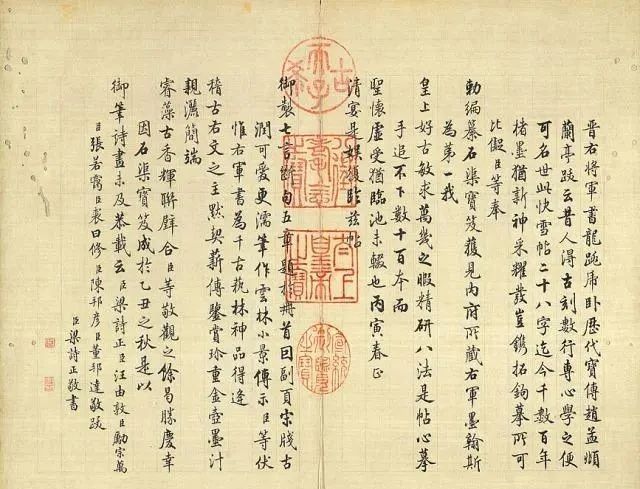 晉右將軍書龍跳虎卧歷代寶傳趙孟頫
蘭亭跋云昔人得古刻數行專心學之便
可名世此快雪帖二十八字迄今千數百年
楮墨猶新神采耀發豈鐫拓鉤摹所可
比儗臣等奉
勅編纂石渠寶笈獲見內府所藏右軍墨翰斯
為第一我
皇上好古敏求萬幾之暇精研八法是帖心摹
手追不下數十百本而
聖懷虛受猶臨池未輟也丙寅春正
清宴是娛復臨茲帖
古希天子
太上皇帝之寶
宣統御覽之寶
御製七言斷句五章題於冊首回副頁宋牋古
潤可愛更濡筆作雲林小景傳示臣等伏
惟右軍書為千古藝林神品得逢
稽古右文之主默契薪傳鑒賞珍重金壺墨汁
親灑簡端
睿藻古香輝聯璧合臣等敬觀之餘曷勝慶幸
因石渠寶笈成於乙丑之秋是以
御筆詩畫未及恭載云臣梁詩正臣汪由敦臣勵宗萬
臣張若靄臣裘曰修臣陳邦彥臣董邦達敬跋
臣梁詩正敬書